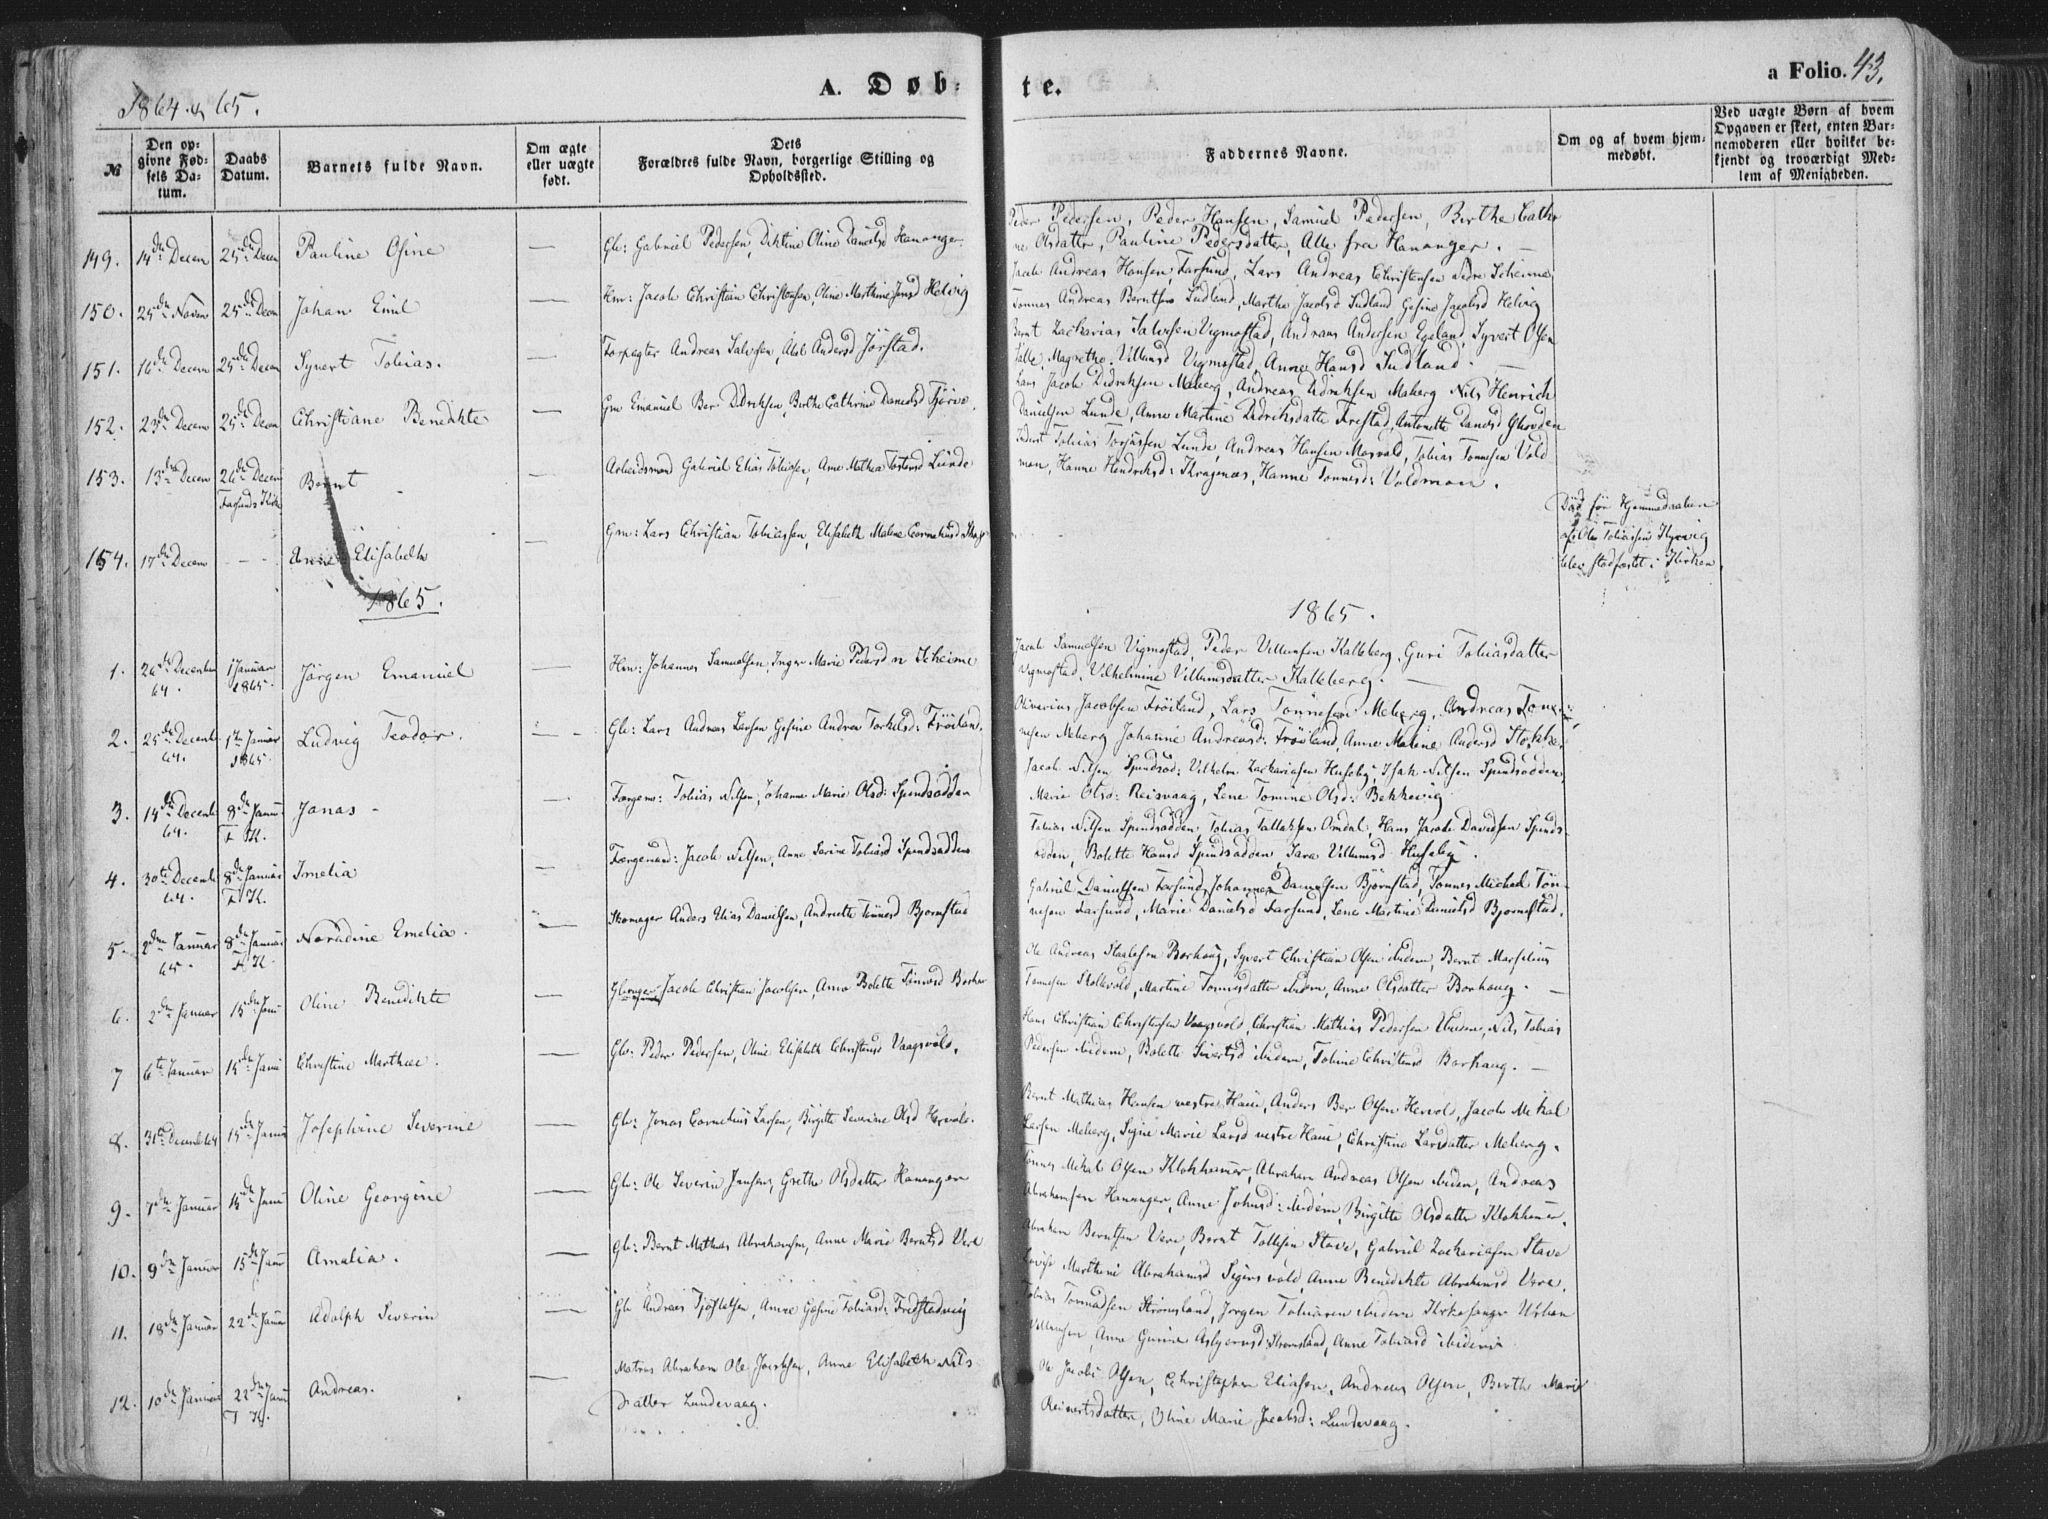 1864 & 65.
A. Døb-
te.
a Folio. 43.
№
Den opgivne Fødsels Datum.
Daabs Datum.
Barnets fulde Navn.
Om ægte eller uægte født.
Dets Forældres fulde Navn, borgerlige Stilling og Opholdssted.
Faddernes Navne.
Om og af hvem hjemmedøbt.
Ved uægte Børn af hvem Opgaven er skeet, enten Barnemoderen eller hvilket bekjendt og troværdigt Medlem af Menigheden.
149. 14de Decem 25de Decem Pauline Osine — Gb: Gabriel Pedersen, Oline Danielsd Hananger
Peder Pedersen, Peder Hansen, Samuel Pedersen, Berthe Cathr
ne Olsdatter, Pauline Pedersdatter, Alle fra Hananger. —
150. 25de Novem 25de Decem Johan Emil — Hm: Jacob Christian Christensen, Oline Marthine Jensd Helvig
Jacob Andreas Hansen, Farsund, Lars Andreas Christensen Nedre Scheime
Tønnes Andreas Berntsen Sudland, Marthe Jacobsd Sudland Gesine Jacobsd Helvig
151. 16de Decem 25de Decem Syvert Tobias. — Forpagter Andreas Salvesen, Abel Andersd Jørstad.
Bernt Zacharias Salvesen Vigmostad, Andreas Andersen Egeland, Syvert Olsen
Magrethe Villumsd Vigmostad, Anne Hansd Sudland. —
152. 23de Decem 25de Decem Christiane Benedikte — Gm Emanuel Ber Didriksen, Berthe Cathrine Danielsd Tjørve.
Lars Jacob Didriksen Meberg, Andreas Didriksen Meberg Nils Henrich
Danielsen Lunde, Anne Martine Didriksdatter Frestad, Antonette Danielsd
153. 13de Decem 26de Decem Farsunds Kirke Bernt — Arbeidsmand Gabriel Elias Tobiassen, Anne Mathea Lunde
Tobias Torjussen Lunde, Andreas Hansen Mosvold, Tobias Tønnesen Vold
mon, Hanne Hendriksd: Kragenæs, Hanne Tønnesd: Voldmon.
154. 17de Decem - - - Elisabeth — Gm: Lars Christian Tobiassen, Elisabeth Malene Corneliusd
Død før Hjemmedaaben
af Ole Tobiassen
blev stadfæstet i Kirken
1865.
1865.
1. 26de December 64. 1 Januar 1865. Jørgen Emanuel — Hm: Johannes Samuelsen, Inger Marie Pedersd n Scheime
Jacob Samuelsen Vigmostad, Peder Villumsen Kalleberg, Guri Tobiasdatter
Vigmostad, Vilhelmine Villumsdatter Kalleberg. —
2. 25de Decemb 64. 1ste Januar 1865. Ludvig Teodor. — Gb: Lars Andreas Larsen, Gesine Andrea Torkelsd: Frøiland.
Oliverius Jacobsen Frøiland, Lars Tønnesen Meberg, Andreas Tøn-
nesen Meberg Johanne Andreasd: Frøiland, Anne Malene Andersd Stokke.
3. 14de Decemb 64. 8de Januar F. K. Jonas - — Færgem: Tobias Nilsen, Johanne Marie Olsd: Spindsodden
Jacob Nilsen Spindsod: Vilhelm Zachariasen Huseby, Isak Nilsen Spindsodden,
Marie Olsd: Reisvaag, Lene Tomine Olsd: Bekkevig
4. 30te Decemb 64. 8de Januar F. K. Imelia — Færgemand: Jacob Nilsen, Anne Serine Tobiasd Spindsodden
Tobias Nilsen Spindsodden, Tobias Tallaksen Omdal, Hans Jacob Davidsen Spinds-
odden, Bolette Hansd Spindsodden, Sara Villumsd Huseby.
5. 2den Januar 65. 8de Januar F. K. Noradine Emelia. — Skomager Anders Elias Danielsen, Andriette Tønnesd Bjørnstad
Gabriel Danielsen Farsund, Johannes Danielsen Bjørnstad, Tønnes Michael Tøn-
nesen Farsund, Marie Danielsd Farsund, Lene Martine Danielsd Bjørnstad.
6. 2de Januar 15de Janu Oline Benedikte — Jacob Christian Jacobsen, Anne Bolette Tønnesd Borhau
Ole Andreas Staalesen Borhaug, Syvert Christian Olsen ibidem, Bernt Marselius
Tønnesen Skollevold, Martine Tønnesdatter ibidem, Anne Olsdatter Borhaug. —
7 6te Januar 15de Janu Christine Marthee. — Gb: Peder Pedersen, Oline Elisabeth Christensd Vaagsvold.
Hans Christian Christensen Vaagsvold, Christian Mathias Pedersen ibidem, Nils Tobias
Pedersen ibidem, Bolette Sivertsd ibidem, Tobine Christensd Borhaug. —
8. 31te Decemb 64 15de Januar Josephine Severine — Gb: Jonas Cornelius Larsen, Birgitte Severine Olsd Hervold.
Bernt Mathias Hansen vestre Haue, Anders Ber Olsen Hervold, Jacob Mikal
Larsen Meberg, Signe Marie Larsd vestre Haue, Christine Larsdatter Meberg.
9. 7de Januar 15de Janu Oline Georgine — Gb: Ole Severin Jensen, Grethe Olsdatter Hananger
Tønnes Mikal Olsen Klokhammer, Abraham Andreas Olsen ibidem, Andreas
Abrahamsen Hananger, Anne Johnsd: ibidem, Birgitte Olsdatter Klokhammer.
10. 9de Januar 15de Janu Amalia. — Gb: Bernt Mathias Abrahamsen, Anne Marie Berntsd Vere
Abraham Berntsen Vere, Bernt Tollefsen Stave, Gabriel Zachariasen Stave
Lovise Marthine Abrahamsd Sigersvold, Anne Benedikte Abrahamsd Vere.
11. 18de Januar 22de Januar Adolph Severin — Gb Andreas, Anne Gesine Tobiasd: Fredstadvig
Tobias Tønnessen Strømsland, Jørgen Tobiasen ibidem Kirkesanger Urban
Villumsen, Anne Gurine Asbjørnsd: Strømsland, Anne Tobiasd ibidem
12. 10de Januar 22de Janu F. K. Andreas. — Matros Abraham Ole Jacobsen, Anne Elisabeth Nils-
datter Lundevaag.
Ole Jacob Olsen, Christopher Eliasen, Andreas Olsen, Berthe Marie
Reinertsdatter, Oline Marie Jacobsd: Lundevaag.